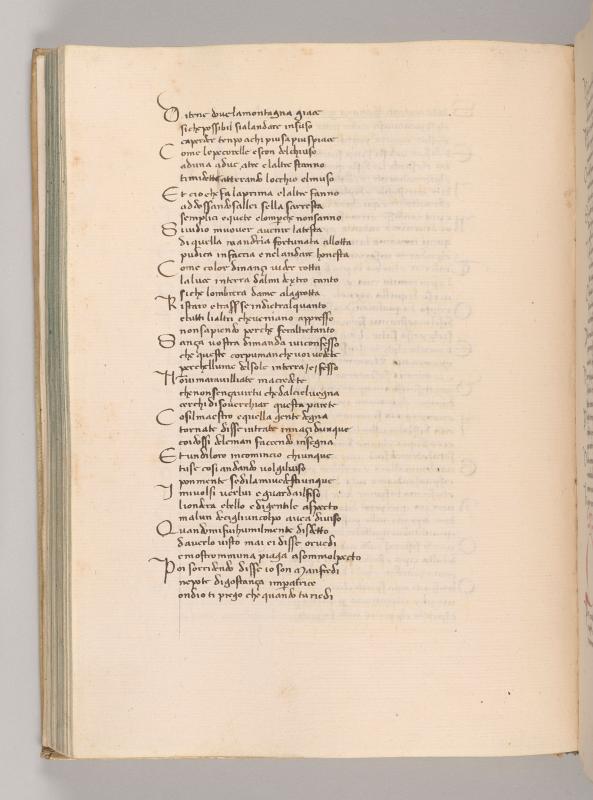 Ditene doue lamontagna giace
siche possibil sia landare insuso
caperder tenpo achi piu sa piu spiace
Come le pecorelle escon delchiuso
aduna adue atre elaltre stanno
timidette atterando locchio elmuso
Et cio che fa laprima elaltre fanno
adossandosallei sella sarresta
semplici equete elomperche nonsanno
Siuidio muouer auenir latesta
di quella mandria fortunata allotta
pudica infaccia enelandare honesta
Come color dinanzi uider rotta
laluce interra dalmi dextro canto
siche lombrera dame alagrotta
Ristaro etrasser se indietralquanto
etutti lialtri cheueniano appresso
nonsapiendo perche feraltretanto
Sanza uostra dimanda iuiconfesso
che queste corpumanche uoi uedete
perchellume delsole interra e fesso
Noui marauilliate macredete
chenonsenzauirtu chedalcieluegna
cerchi disouerchiar questa parete
Cosilmaestro equella gente degna
tornate disse intrate innazidunque
coidossi deleman faccendo insegna
Et undiloro incomincio chiunque
tuse cosi andando uolgiluiso
ponmente sedilamiuedestiunque
Imiuolsi uerlui eguardailfiso
biondera ebello edigentile aspecto
malun decigliuncolpo auea diuiso
Quandomifuihumilmente disdetto
dauerlo uisto mai ei disse oruedi
emostrommiuna piaga asommolpecto
Poi sorridendo disse io son Manfredi
nepote digostanza imperatrice
ondio ti prego che quando tu riedi